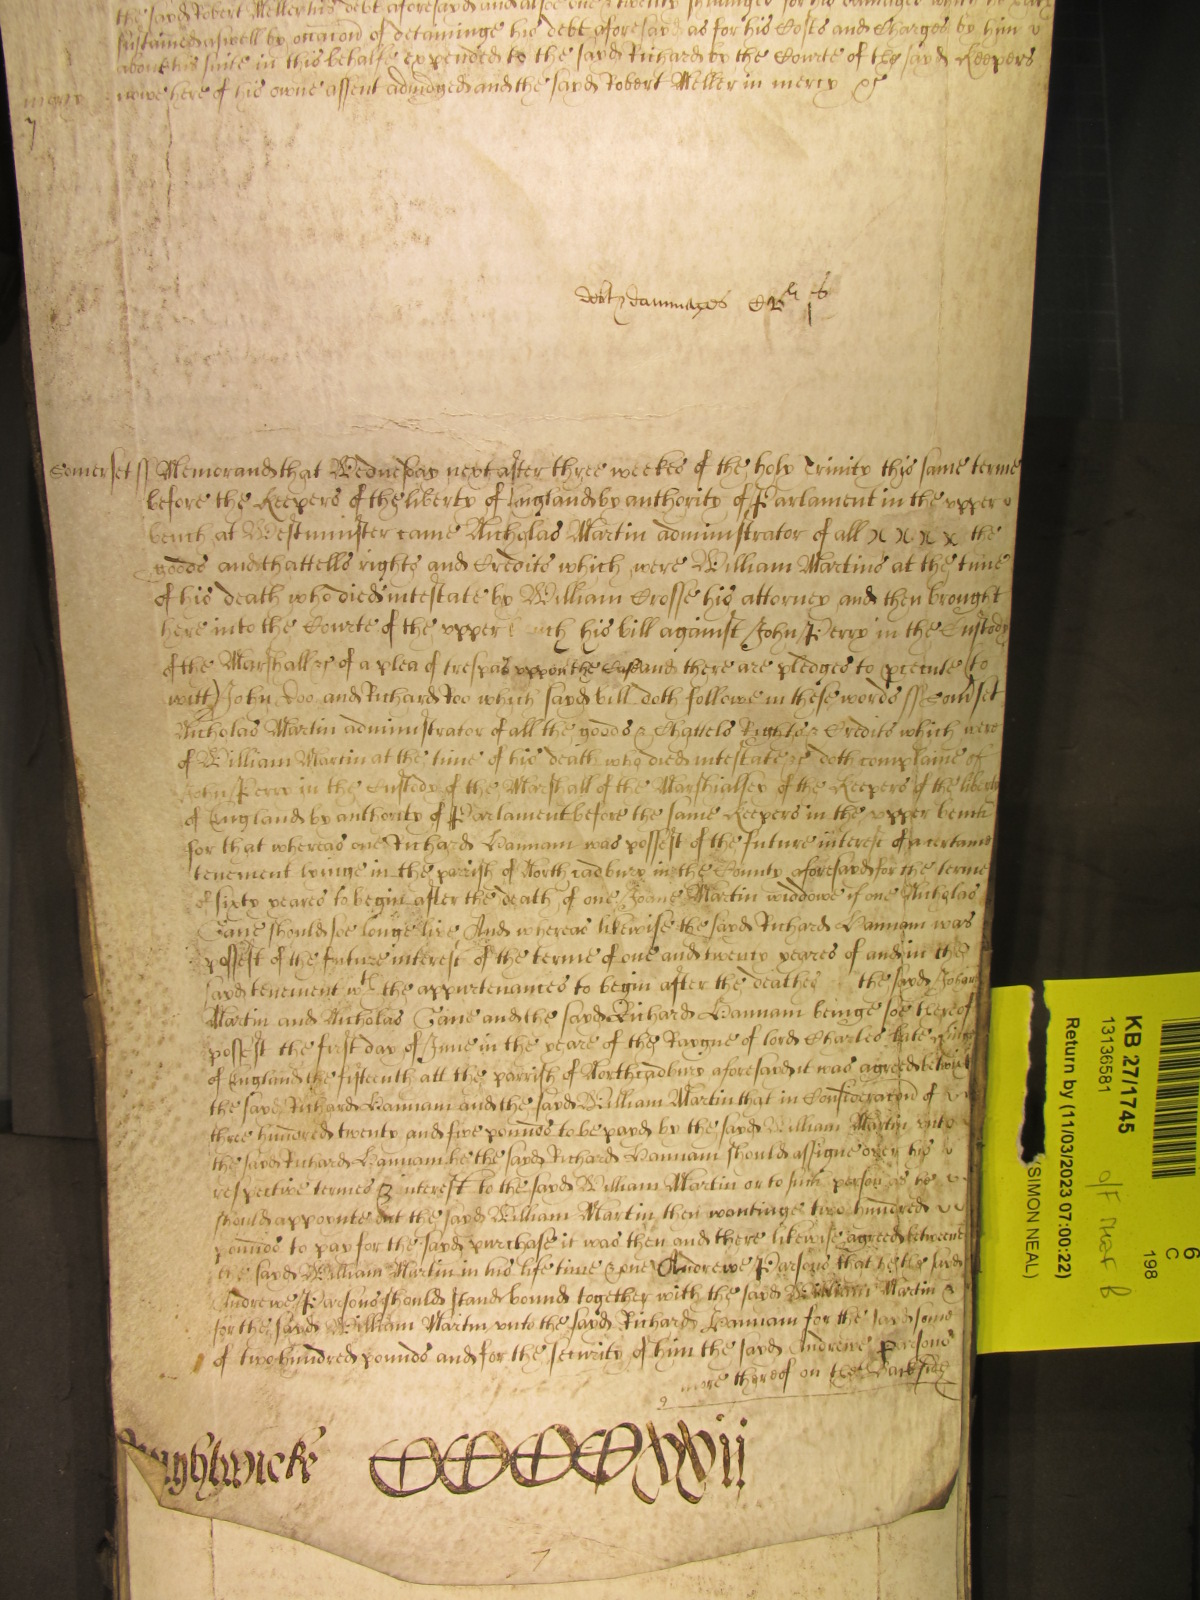 the sayd Robert Meller his debt aforesayd and alsoe one & twenty shillinges for his damages which he hath
sustained aswell by occasion of detaininge his debt aforesayd as for his Costs and Charges by him
about his suite in this behalfe expended to the sayd Richard by the Courte of the sayd Keepers
nowe here of his owne assent adiudged and the sayd Robert Meller in mercy &c
mercy
7
debt & dammages
Somerset ss Memorand that Wednesday next after three weekes of the holy Trinity this same terme
before the Keepers of the liberty of England by authority of Parlament in the upper
bench at Westminster came Nicholas Martin administrator of all x x x x the
goods and chattells rights and Credits which were William Martins at the time
of his death who died intestate by William Crosse his attorney and then brought
here into the Courte of the upper bench his bill against John Perry in the Custody
of the Marshall &c of a plea of trespas uppon the Case and there are pledges to psecute (to
witt) John Doo and Richard Roo which sayd bill doth followe in these words ss Somset
Nicholas Martin administrator of all the goods & Chattels Rights & Credits which were
of William Martin at the time of his death who died intestate &c doth complaine of
John Perry in the Custody of the Marshall of the Marshalsey of the Keepers of the liberty
of England by authority of Parlament before the same Keepers in the upper bench
for that whereas one Richard Hannam was possest of the future interest of a certaine
tenement lyinge in the parrish of North Cadbury in the County aforesayd for the terme
of sixty yeares to begin after the death of one Joane Martin widdowe if one Nicholas
Cane should soe longe live And whereas likewise the sayd Richard Hannam was
possest of the future interest of the terme of one and twenty yeares of and in the
sayd tenement wth the appurtenances to begin after the deathes the sayd Johan
Martin and Nicholas Cane and the sayd Richard Hannam beinge soe thereof
possest the first day of June in the yeare of the Raygne of lord Charles late Kinge
of England the fifteenth att the parrish of Northcadbury aforesayd it was agreed betwixt
the sayd Richard Hannam and the sayd William Martin that in Consideracon of
three hundred twenty and five pounds to be payd by the sayd William Martin unto
the sayd Richard Hannam he the sayd Richard Hannam should assigne over his
respective termes & interest to the sayd William Martin or to such person as he
should appoynte But the sayd William Martin then wantinge two hundred
pounds to pay for the sayd purchase it was then and there likewise agreed betweene
the sayd William Martin in his life time & one Andrewe Parsons that he the sayd
Andrewe Parsons should stand bound together with the sayd William Martin &
for the sayd William Martin unto the sayd Richard Hannam for the sayd some
of two hundred pounds and for the security of him the sayd Andrewe Parsons
more thereof on the backside
CCCCxxii
7
KB 27/1745
13136581
Return by (11/03/2023 07:00:22)
(SIMON NEAL)
6
C
198